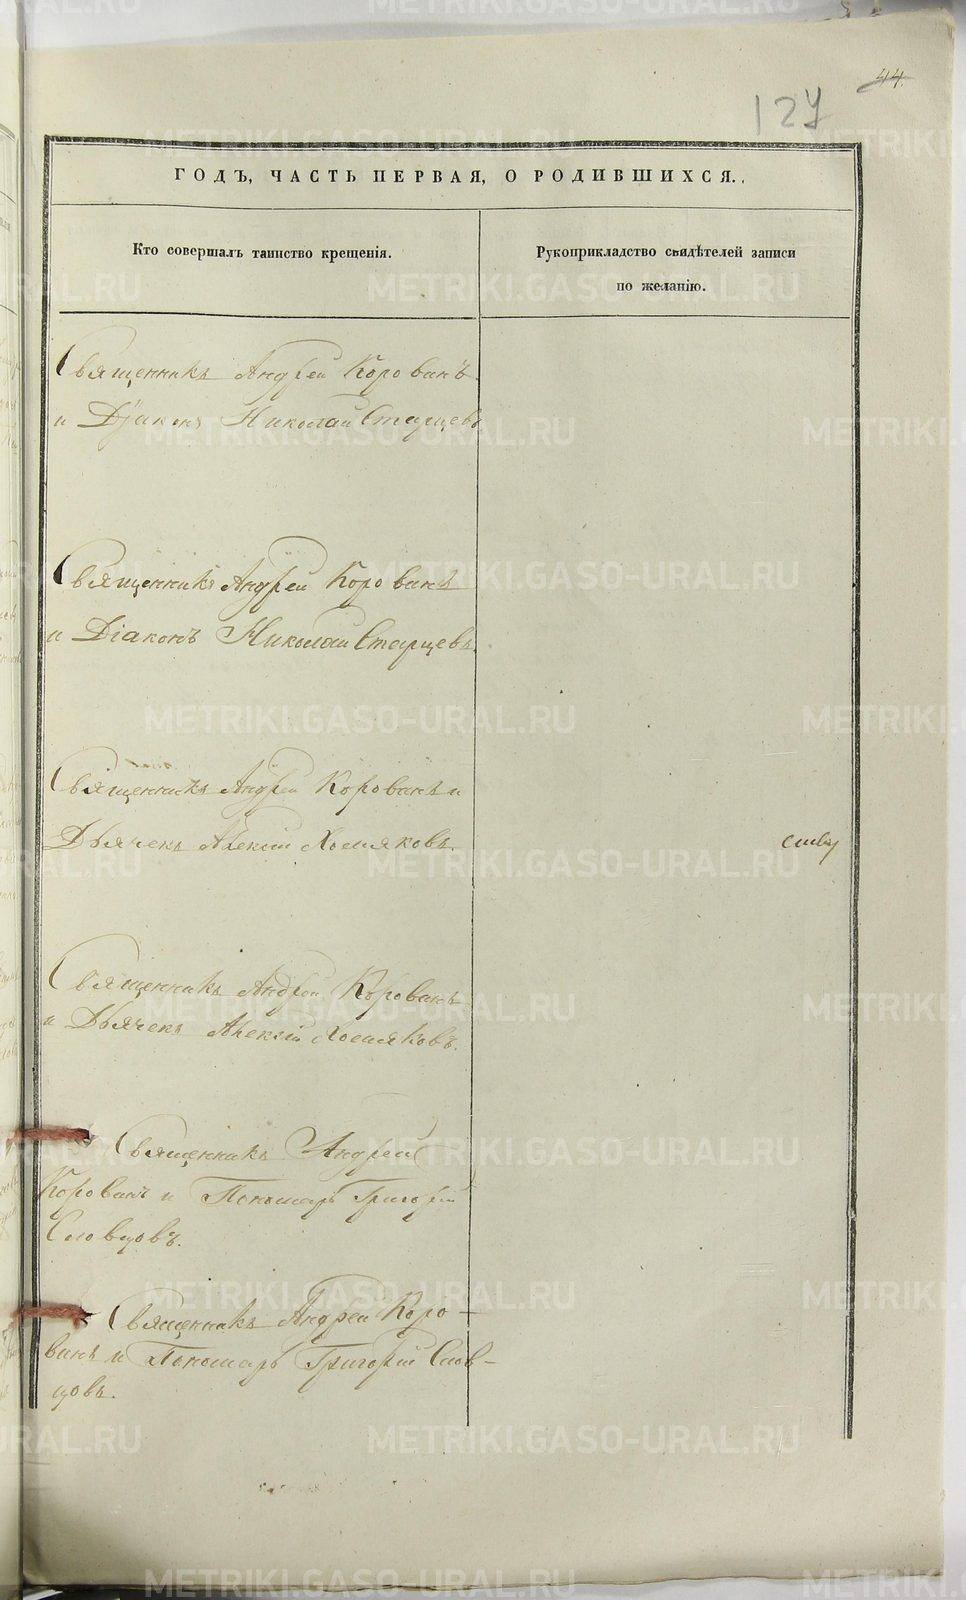 44.
127
ГОДЪ, ЧАСТЬ ПЕРВАЯ, О РОДИВШИХСЯ.
Кто совершалъ таинство крещенія.
Рукоприкладство свидѣтелей записи
по желанію.
Священникъ Андрей Корованъ
и Дїаконъ Николай Старцевъ
Священникъ Андрей Корованъ
и Діаконъ Николай Старцевъ.
Священникъ Андрей Корованъ и
Дьячекъ Алексій Хомяковъ.
Священникъ Андрей Корованъ
и Дьячекъ Алексій Хомяковъ.
Священникъ Андрей
Корованъ и Пономарь Григорій
Словцовъ.
Священникъ Андрей Коро-
ванъ и Пономарь Григорій Слов-
цовъ.
METRIKI.GASO-URAL.RU